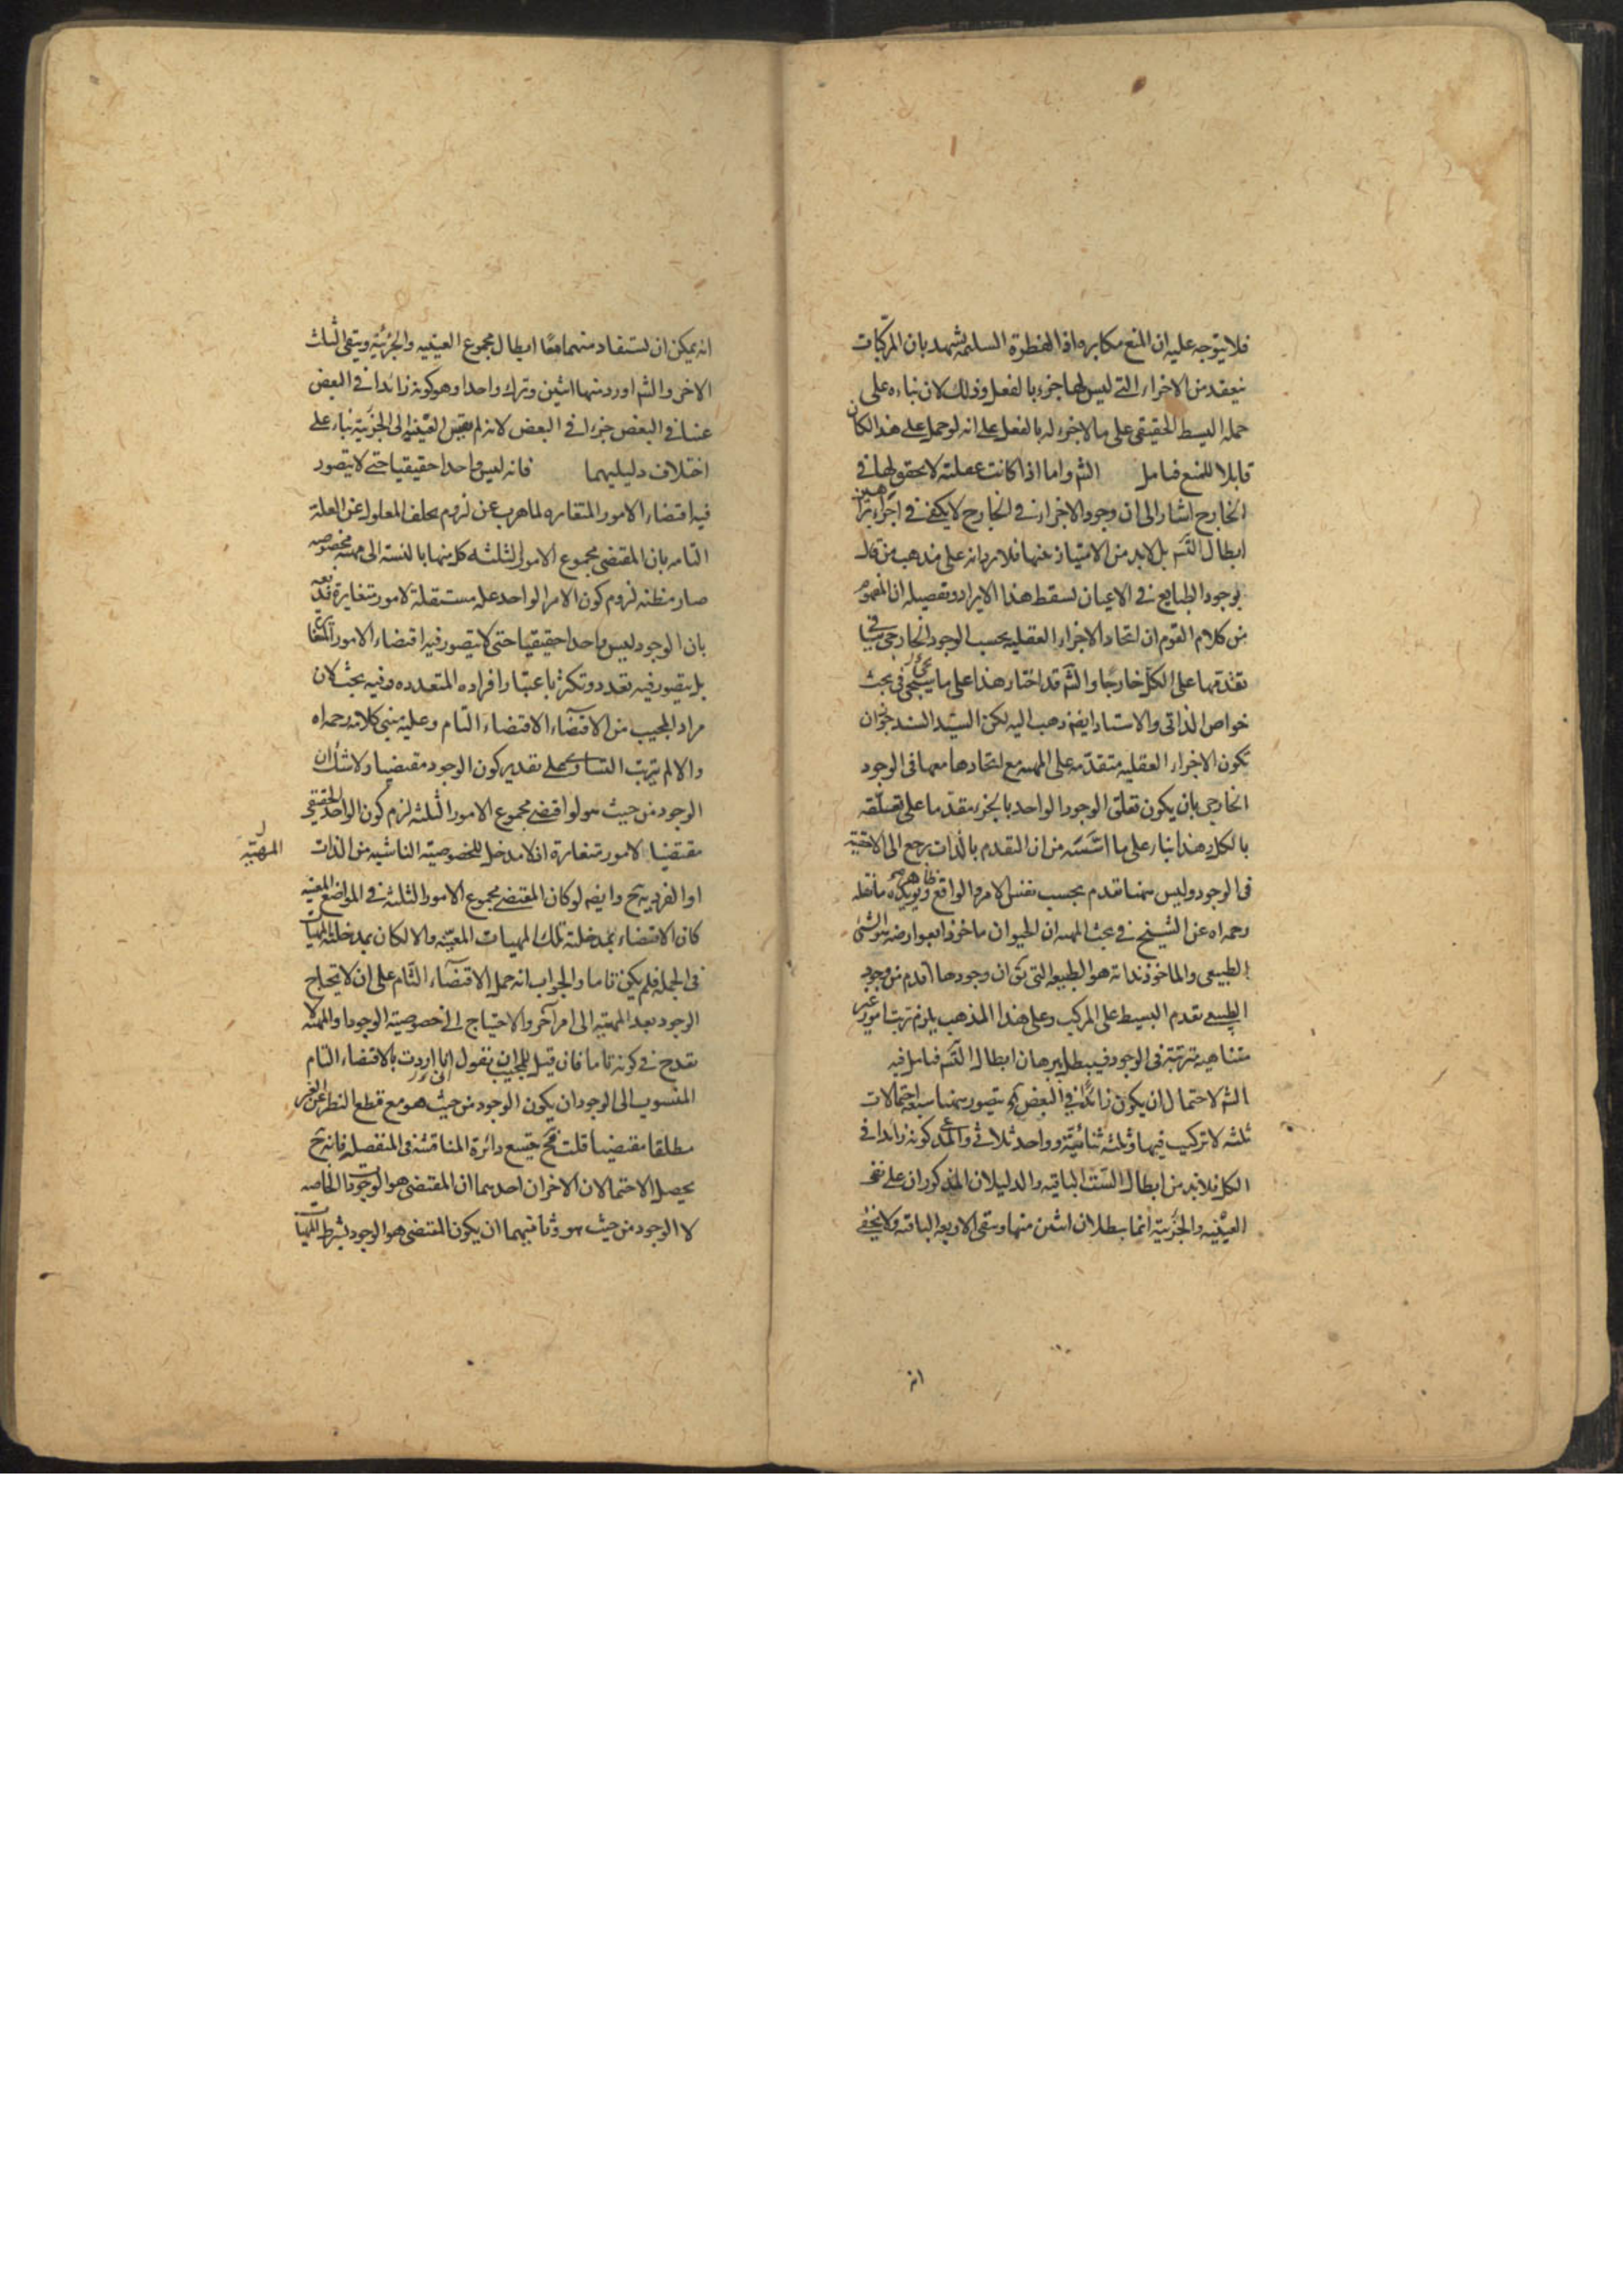 فلا يتوجه عليه ان المنع مكابره اذ الفطرة السليمه تشهد بان المركبات
ينعقد من الاجزاء التى ليس لها جزء بالفعل وذلك لان بناءه على
حمله البسيط الحقيقى على ما لا جزء له بالفعل على انه لو حمل على هذا لكان
قابلا للمنع فتامل الشم واما اذا كانت عقلية لا تحقق لها فى
الخارج اشار الى ان وجود الاجزاء فى الخارج لا يكفى فى اجراء براهين
ابطال التسم بل لابد من الامتياز عنها فلا يرد انه على مذهب من قال
بوجود الطبايع فى الاعيان لسقط هذا الايراد وتفصيله ان المفهوم
من كلام القوم ان اتحاد الاجزاء العقليه بحسب الوجود الخارجى ينافى
تقدمها على الكل خارجا والشم قد اختار هذا على ما سيجئ فى بحث
خواص الذاتى والاستاد ايضا ذهب اليه لكن السيد السند جوز ان
تكون الاجزاء العقليه متقدمة على المهيه مع اتحادها معها فى الوجود
الخارجى بان يكون تعلق الوجود الواحد بالجزء مقدما على تعلقه
بالكل وهذا بناء على ما اسسه من ان التقدم بالذات يرجع الى الاحقية
فى الوجود وليس هنا تقدم بحسب نفس الامر والواقع ويؤيده ظاهر ما نقله
رحمه اه عن الشيخ فى بحث المهيه ان الحيوان ماخوذا بعوارضه هو الشئ
الطبيعى والماخوذ بذاته هو الطبيعه التى يق ان وجودها اقدم من وجود
الطبيعى تقدم البسيط على المركب وعلى هذا المذهب يلزم ترتب امور غير
متناهيه مترتبة فى الوجود فيبطل ببرهان ابطال التسم فتامل فيه
الشم لاحتمال ان يكون زائدا فى البعض اه يتصور هنا سبعه احتمالات
ثلثه لا تركيب فيها وثلثه ثنائية وواحد ثلاثى والمدعى كونه زائدا فى
الكل فلابد من ابطال الستة الباقيه والدليلان المذكوران على نفى
العينيه والجزئية انما يبطلان اثنين منها ويبقى الاربعه الباقيه ولا يخفى
انه
انه يمكن ان يستفاد منهما معا ابطال مجموع العينيه والجزئية ويبقى الثلث
الاخر والشم اورد منها اثنين وترك واحدا وهو كونه زائدا فى البعض
عينا فى البعض جزءا فى البعض لانه لم يقس العينية الى الجزئية بناء على
اختلاف دليليهما فانه ليس واحدا حقيقيا حتى لا يتصور
فيه اقتضاء الامور المتغايره لما هرب عن لزوم تخلف المعلول عن العلة
التامه بان المقتضى مجموع الامور الثلثه كل منها بالنسبة الى مهيه مخصوصه
صار مظنه لزوم كون الامر الواحد علة مستقلة لامور متغايرة فدفعه
بان الوجود ليس واحدا حقيقيا حتى لا يتصور فيه اقتضاء الامور المتغايرة
بل يتصور فيه تعدد وتكثر باعتبار افراده المتعدده وفيه بحث لان
مراد المجيب من الاقتضاء الاقتضاء التام وعليه مبنى كلامه رحمه اه
والا لم يترتب التساوى على تقدير كون الوجود مقتضيا ولا شك ان
الوجود من حيث هو لو اقتضى مجموع الامور الثلثه لزم كون الواحد الحقيقى
مقتضيا لامور متغايرة اذ لا مدخل للخصوصية الناشيه من الذات
المهيّة
او الفرديه ح وايضا لو كان المقتضى مجموع الامور الثلثه فى المواضع المعينه
كان الاقتضاء بمدخلية تلك المهيات المعينه والا لكان بمدخلية المهيات
فى الجمله فلم يكن تاما والجواب انه حمل الاقتضاء التام على ان لا يحتاج
الوجود بعد المهيه الى امر آخر والاحتياج الى خصوصية الوجود والمهية لا
يقدح فى كونه تاما فان قيل للمجيب ان يقول انى اردت بالاقتضاء التام
المنسوب الى الوجود ان يكون الوجود من حيث هو مع قطع النظر عن الغير
مطلقا مقتضيا قلت فح يتسع دائرة المناقشه فى المنفصله فانه ح
يحصل الاحتمالان الاخران احدهما ان المقتضى هو الوجودات الخاصه
لا الوجود من حيث هو وثانيهما ان يكون المقتضى هو الوجود بشرط المهيات